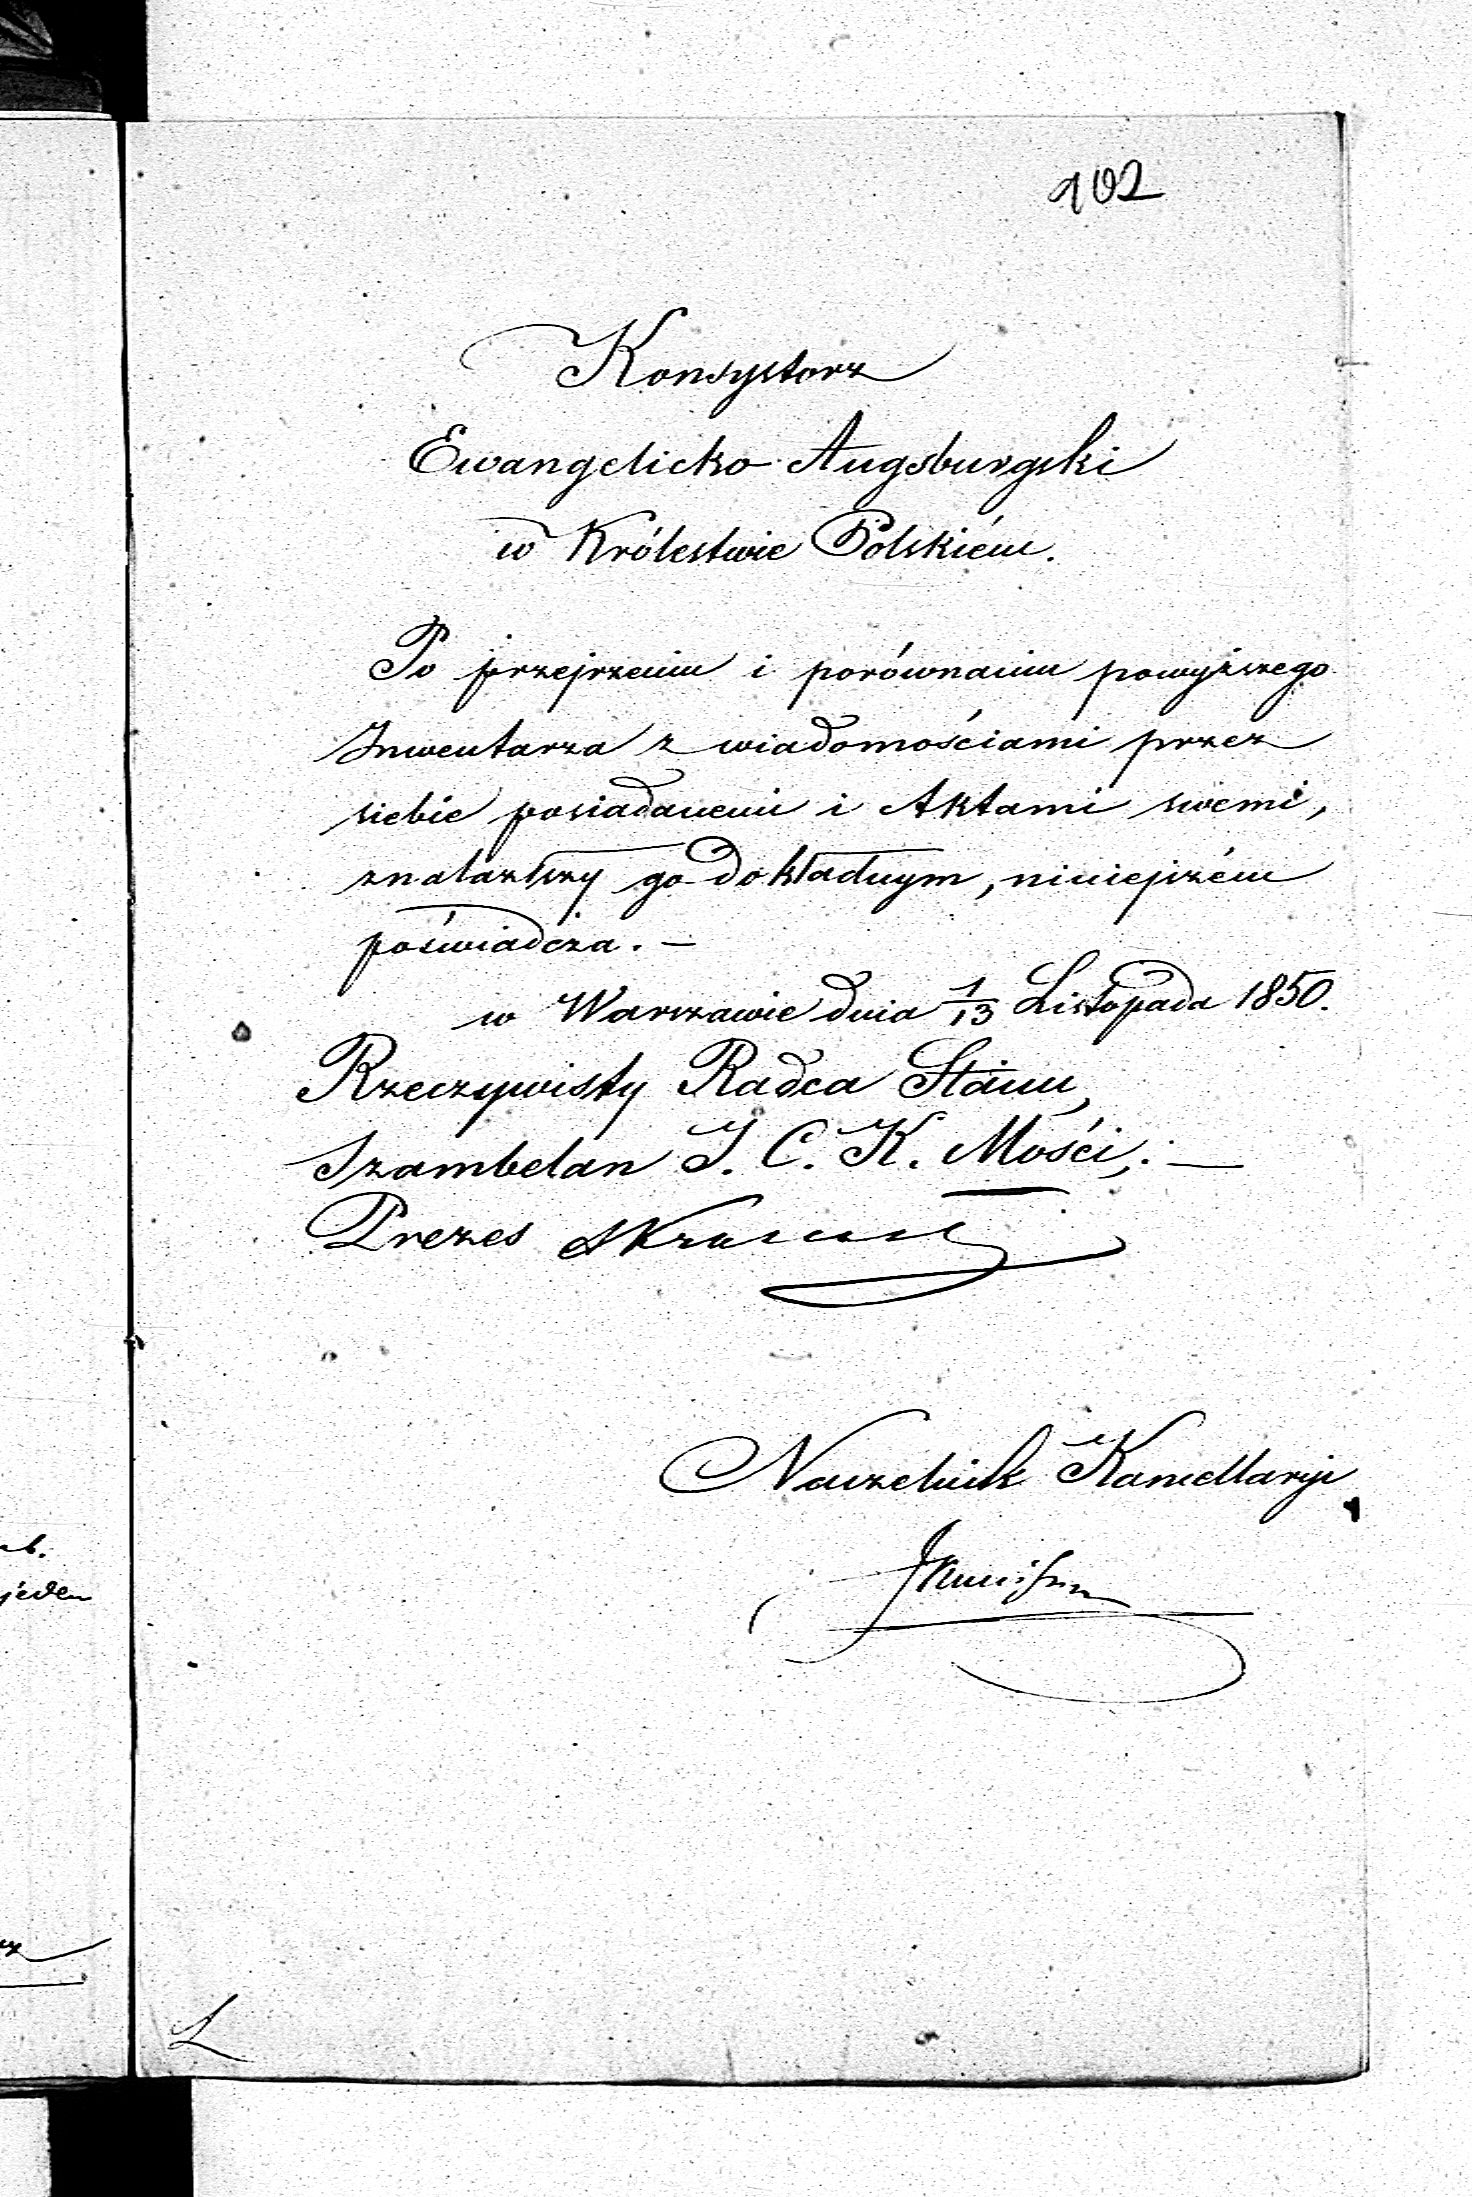 102
Konsystorz
Ewangelicko Augsburgski
w Królestwie Polskiém.
Po przejrzeniu i porównaniu powyższego
Inwentarza z wiadomościami przez
siebie posiadanemi i Aktami swemi,
znalazłszy go dokładnym, niniejszém
poświadcza. —
w Warszawie dnia 1/13 Listopada 1850.
Rzeczywisty Radca Stanu,
Szambelan J. C. K. Mości, —
Prezes
Naczelnik Kancellaryi
jeden
L